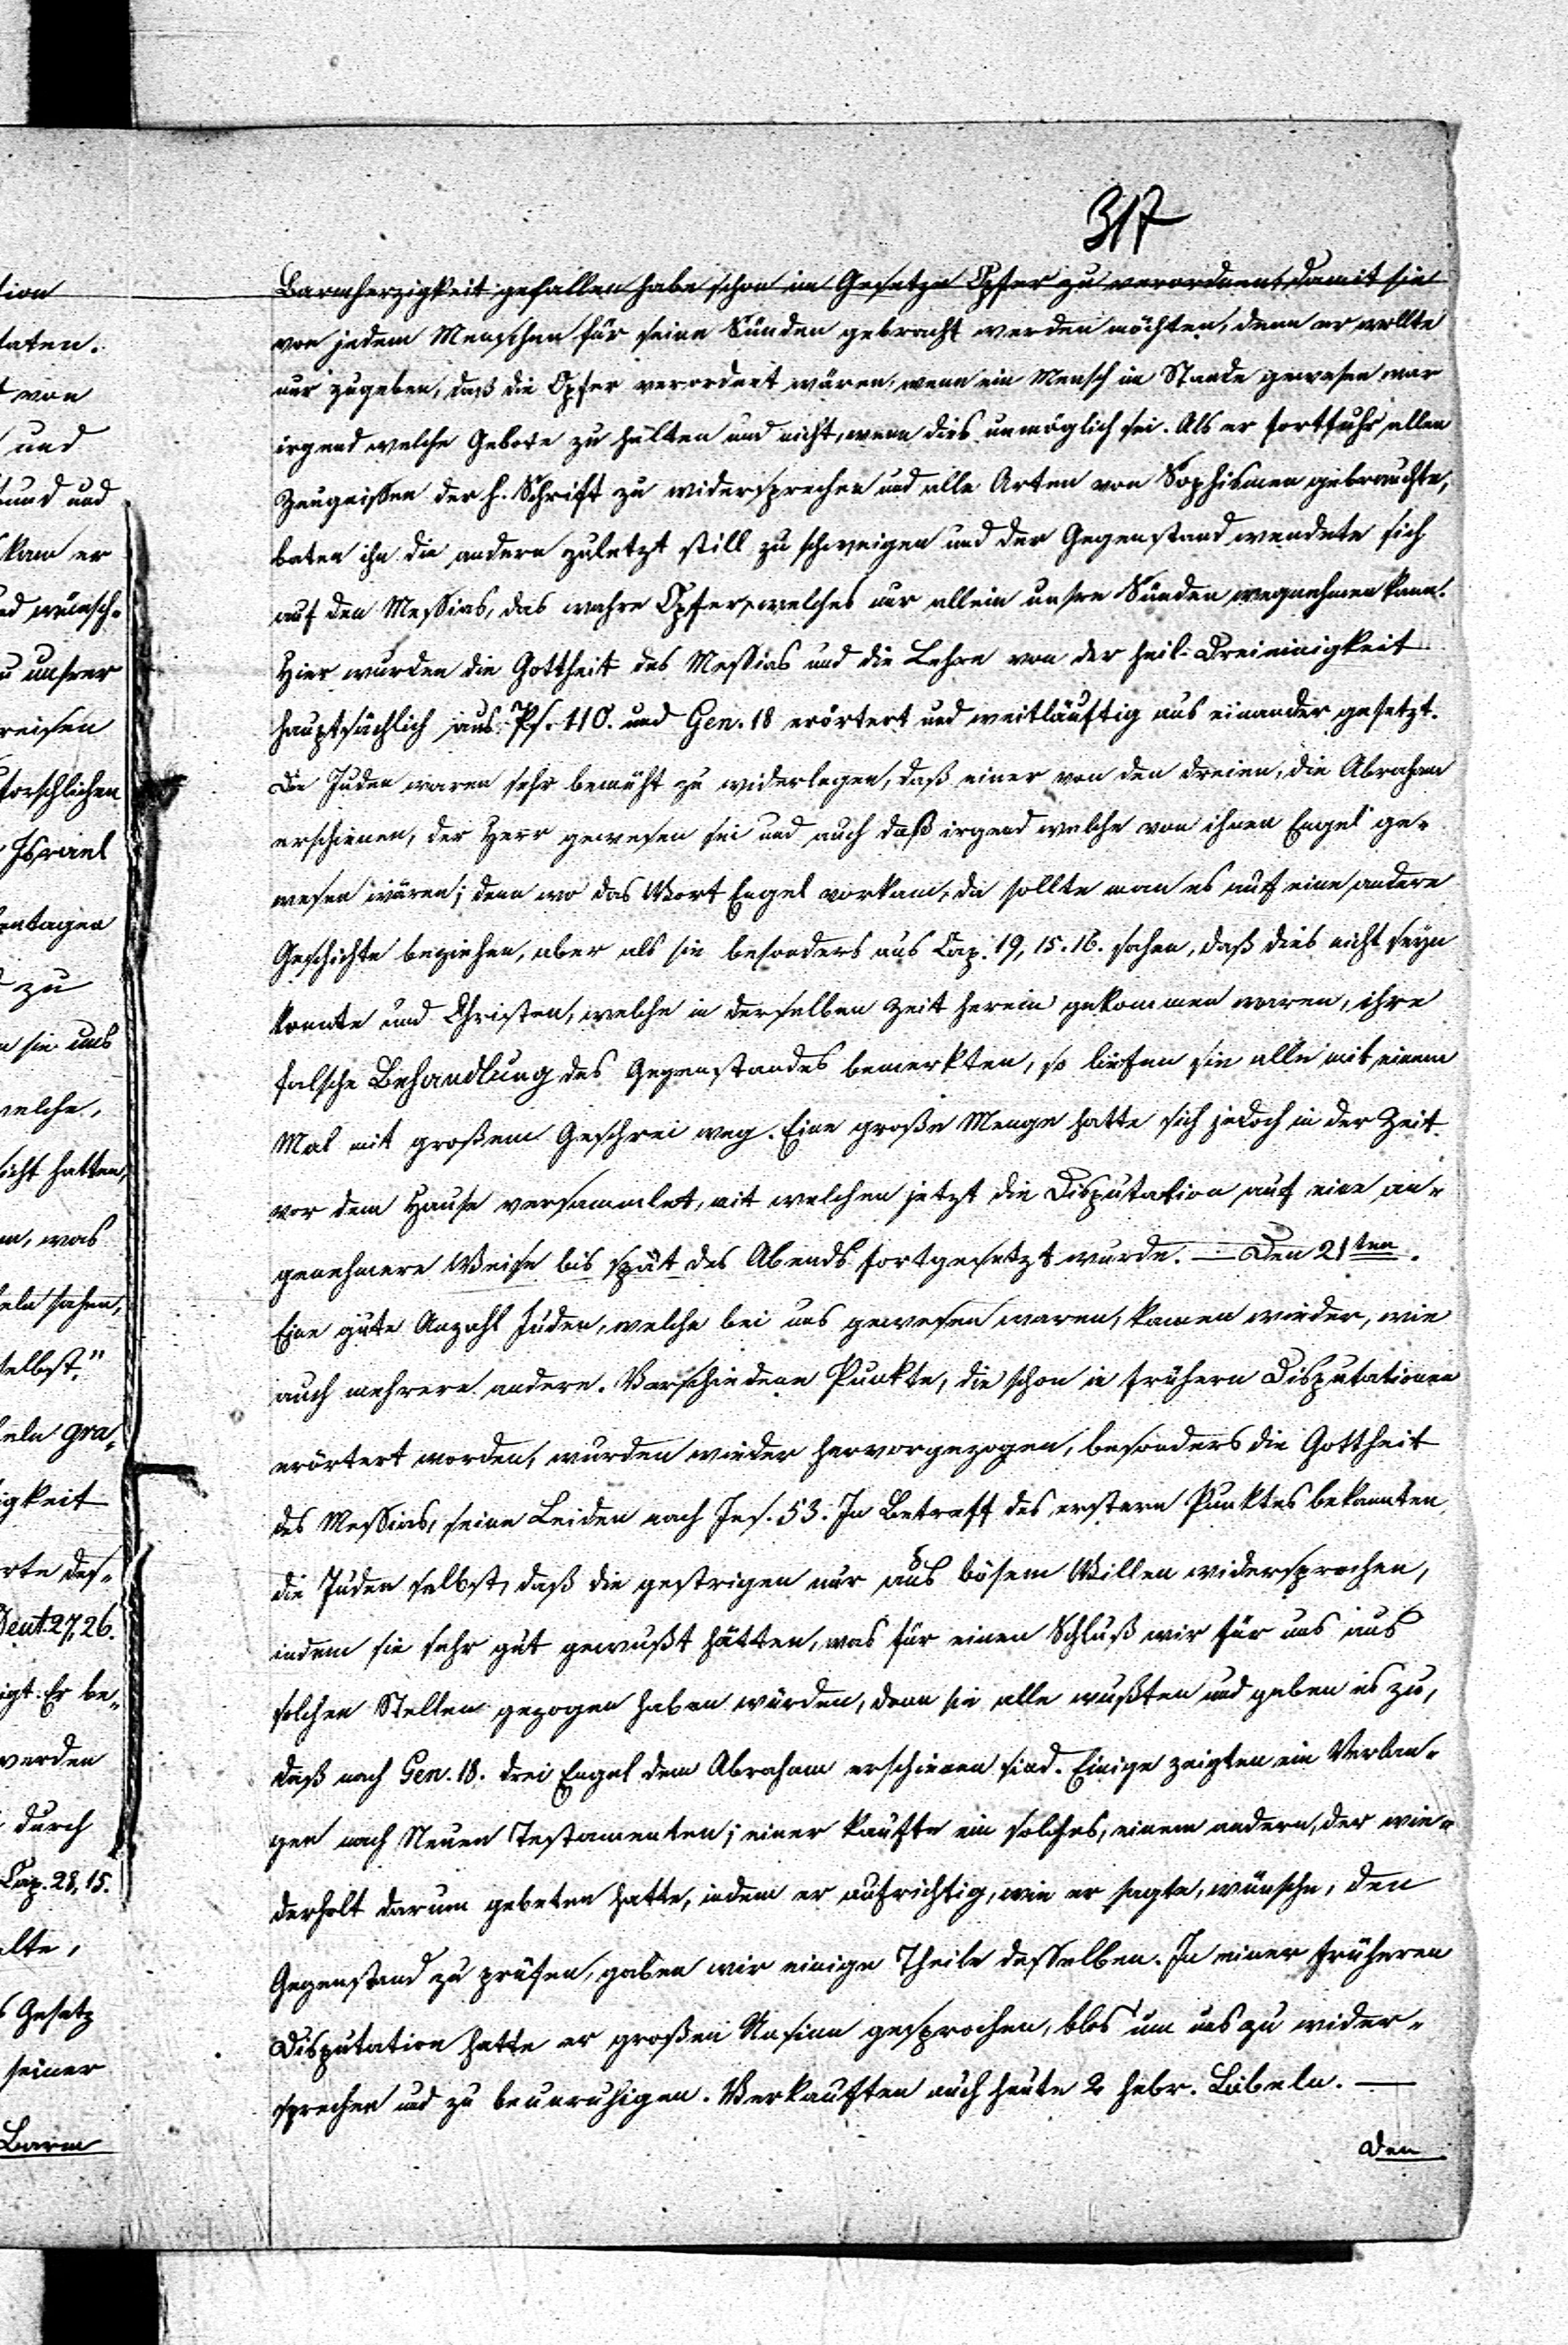 317
Barmherzigkeit gefallen habe schon im Gesetze Opfer zu verordnen, damit sie
von jedem Menschen für seine Sünden gebracht werden möchten, denn er wollte
nur zugeben, daß die Opfer verordnet wären, wenn ein Mensch im Stande gewesen war
irgend welche Gebote zu halten und nicht, wenn dies unmöglich sei. Als er fortfuhr allen
Zeugnissen der h. Schrift zu widersprechen und alle Arten von Sophismen gebrauchte,
baten ihn die andern zuletzt still zu schweigen und der Gegenstand wendete sich
auf den Messias, das wahre Opfer, welches nur allein unsre Sünden wegnehmen kann.
Hier wurden die Gottheit des Messias und die Lehre von der heil. Dreieinigkeit
hauptsächlich aus Ps. 110. und Gen. 18 erörtert und weitläuftig aus einander gesetzt.
Die Juden waren sehr bemüht zu widerlegen, daß einer von den dreien, die Abraham
erschienen, der Herr gewesen sei und auch daß irgend welche von ihnen Engel ge-
wesen wären; denn wo das Wort Engel vorkam, da sollte man es auf eine andere
Geschichte beziehen, aber als sie besonders aus Cap. 19, 15. 16. sahen, daß dies nicht seyn
konnte und Christen, welche in derselben Zeit herein gekommen waren, ihre
falsche Behandlung des Gegenstandes bemerkten, so liefen sie alle mit einem
Mal mit großem Geschrei weg. Eine große Menge hatte sich jedoch in der Zeit
vor dem Hause versammlet, mit welchen jetzt die Disputation auf eine an-
genehmere Weise bis spät des Abends fortgesetzt wurde. — Den 21ten.
Eine gute Anzahl Juden, welche bei uns gewesen waren, kamen wieder, wie
auch mehrere andere. Verschiedene Punkte, die schon in frühern Disputationen
erörtert worden, wurden wieder hervorgezogen, besonders die Gottheit
des Messias, seine Leiden nach Jes. 53. In Betreff des erstern Punktes bekannten
die Juden selbst, daß die gestrigen nur aus bösem Willen widersprochen,
indem sie sehr gut gewußt hätten, was für einen Schluß wir für uns aus
solchen Stellen gezogen haben würden, denn sie alle wußten und geben es zu,
daß nach Gen. 18. drei Engel dem Abraham erschienen sind. Einige zeigten ein Verlan-
gen nach Neuen Testamenten; einer kaufte ein solches, einem andern, der wie-
derholt darum gebeten hatte, indem er aufrichtig, wie er sagte, wünsche, den
Gegenstand zu prüfen, gaben wir einige Theile desselben. In einer früheren
Disputation hatte er großen Unsinn gesprochen, blos um uns zu wider-
sprechen und zu beunruhigen. Verkauften auch heute 2 hebr. Bibeln. —
Den